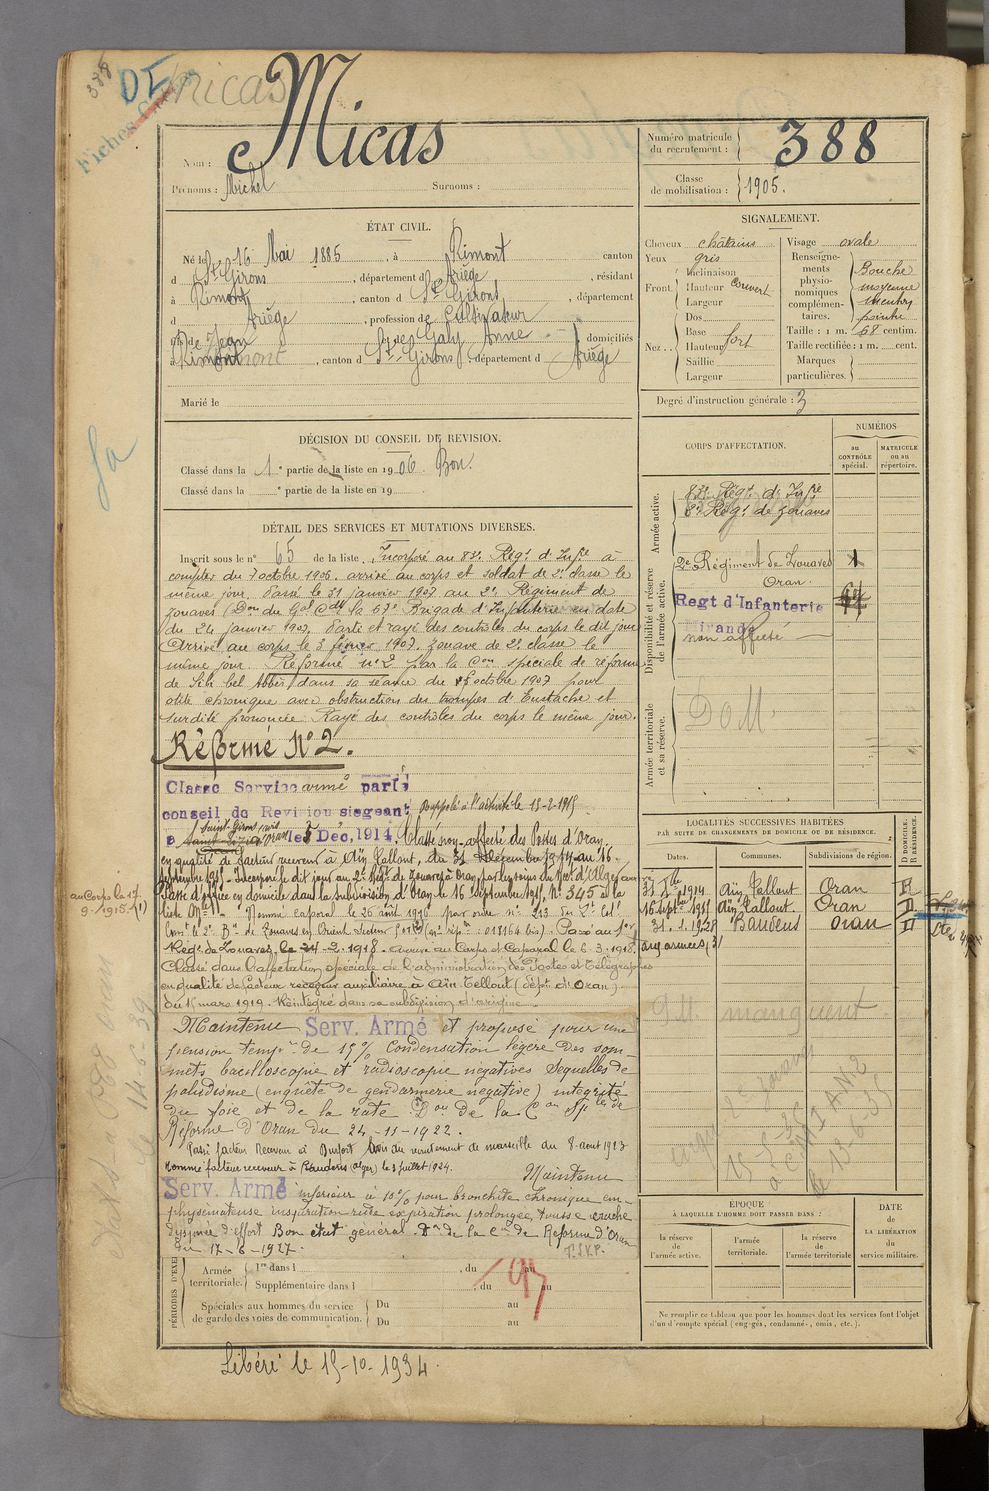 388
Micas
Fiches
Nom : Micas
Prénoms : Michel Surnoms :
Numéro matricule du recrutement : 388
Classe de mobilisation : 1905.
ÉTAT CIVIL.
Né le 16 Mai 1885, à Rimont canton
d St Girons, département d Ariège, résidant
à Rimont, canton d St Girons, département
d Ariège, profession de Cultivateur
fils de Jean et de Galy Anne domiciliés
à Rimont, canton d St Girons, département d Ariège
Marié le
SIGNALEMENT.
Cheveux châtains
Yeux gris
Front. Inclinaison
Hauteur couvert
Largeur
Nez.. Dos
Base
Hauteur fort
Saillie
Largeur
Visage ovale
Renseignements physionomiques complémentaires. Bouche moyenne menton pointu
Taille : 1 m. 68 centim.
Taille rectifiée : 1 m. cent.
Marques particulières.
Degré d'instruction générale : 3
DÉCISION DU CONSEIL DE REVISION.
Classé dans la 1e partie de la liste en 1906. Bon.
Classé dans la e partie de la liste en 19
CORPS D'AFFECTATION.
NUMÉROS
au CONTRÔLE spécial.
MATRICULE ou au répertoire.
Armée active.
83e Régt d'Infie
2e Régt de Zouaves
Disponibilité et réserve de l'armée active.
2e Régiment de Zouaves
Oran.
Regt d'Infanterie
Mirande
non affecté
Armée territoriale et sa réserve.
DOM
DÉTAIL DES SERVICES ET MUTATIONS DIVERSES.
Inscrit sous le n° 65 de la liste. Incorporé au 83e Régt d'Infie à
compter du 7 octobre 1906. arrivé au corps et soldat de 2e classe le
même jour. Passé le 31 janvier 1907 au 2e Régiment de
zouaves (Don du Gal Cdt la 67e Brigade d'Infanterie en date
du 24 janvier 1907. Parti et rayé des contrôles du corps le dit jour
Arrivé au corps le 3 février 1907. zouave de 2e classe le
même jour. Réformé n° 2 par la Con spéciale de réforme
de Sidi bel Abbès dans sa séance du octobre 1907 pour
otite chronique avec obstruction des trompes d'Eustache et
surdité prononcée. Rayé des contrôles du corps le même jour.
Réformé N° 2.
Classé Service armé par le
conseil de Revision siegeant Rappelé à l'activité le 15-2-1915
à Saint Girons le Dec. 1914. Classé non-affecté des Postes d'Oran
en qualité de facteur receveur à Aïn Tallout, du 31 Décembre 1914 au 16
Septembre 1915. Incorporé le dit jour au 2e Régt de Zouaves à Oran
au Corps le 17-9-1915. (1)
Passé d'office en domicile dans la subdivision d'Oran le 16 septembre 1915. N° 345 de la
liste Mle. Nommé caporal le 26 août 1916 par ordre n° 213 du Lt Cel
Régt de Zouaves, le 24-2-1918. arrivé au Corps et Caporal le 6-3-1918.
Classé dans l'affectation spéciale de l'administration des Postes et Télégraphes
en qualité de facteur receveur auxiliaire à Aïn Tellout (dépt d'Oran)
du 15 mars 1919. Réintégré dans sa subdivision d'origine
Maintenu Serv. Armé et proposé pour une
pension tempre de 15% Condensation légère des som-
mets bacilloscopie et radioscopie négatives Sequelles de
paludisme (enquête de gendarmerie négative) intégrité
du foie et de la rate Don de la Con Spéle de
Réforme d'Oran du 24-11-1922.
Passé facteur Receveur à Burfort Avis du recrutement de marseille du 8-aout 1923
Nommé facteur receveur à Bauders (alger) le 3 juillet 1924.
Maintenu
Serv. Armé inférieur à 10% pour bronchite chronique em-
physémateuse inspiration rude expiration prolongée, tousse crache
dyspnée d'effort Bon état général. Don de la Con de Réforme d'Oran
du 17-6-1927.
T.S.V.P.
LOCALITÉS SUCCESSIVES HABITÉES
PAR SUITE DE CHANGEMENTS DE DOMICILE OU DE RÉSIDENCE.
Dates. Communes. Subdivisions de région. D DOMICILE. R RÉSIDENCE.
31 Xbre 1914 Aïn Tallout Oran R
16 septbre 1915 Aïn Tallout. Oran
31. 1. 1928 Baudens Oran
aux armées
manquent
ÉPOQUE
À LAQUELLE L'HOMME DOIT PASSER DANS :
la réserve de l'armée active.
l'armée territoriale.
la réserve de l'armée territoriale
DATE de LA LIBÉRATION du service militaire.
Ne remplir ce tableau que pour les hommes dont les services font l'objet
d'un décompte spécial (engagés, condamnés, omis, etc.).
PÉRIODES D'EXE
Armée territoriale. 1re dans l , du au
Supplémentaire dans l , du au
Spéciales aux hommes du service de garde des voies de communication. Du au
Du au
Libéré le 15-10-1934.